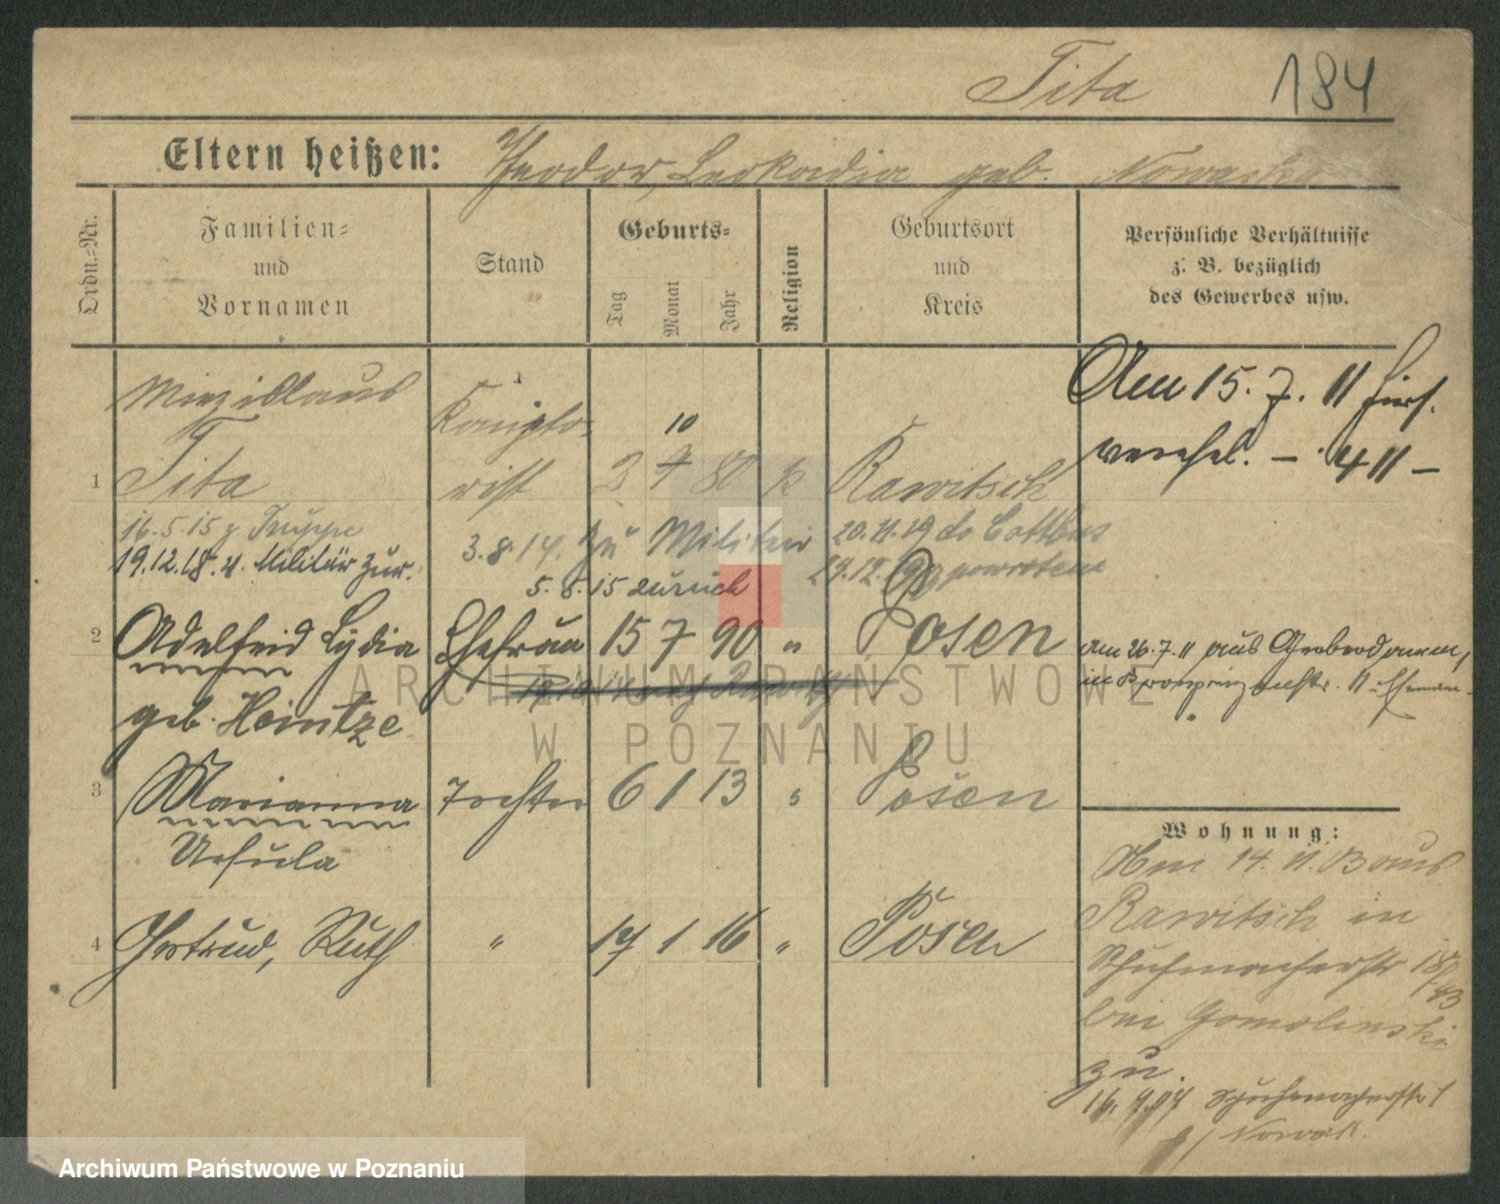 Tita 184
Eltern heißen: Theodor, Leokadia geb. Nowacka
Ordn.-Nr.
Familien-
und
Vornamen
Stand
Geburts-
Tag
Monat
Jahr
Religion
Geburtsort
und
Kreis
Persönliche Verhältnisse
z. B. bezüglich
des Gewerbes usw.
Miezislaus
Kontorist
10
1 Tita 3 7 80 k Rawitsch
Am 15. 7. 11
411
16.5.15 z Truppe
3.8.14. zu Militär
20.11.19 do Cottbus
19.12.18. v. Militär zur.
5. 6. 15 zurück
2 Adelheid Lydia Ehefrau 15 7 90 " Posen
geb. Heintze
am 26.7.11 aus
in Kronprinzenstr. 11
3 Marianna Tochter 6 1 13 " Posen
Ursula
4 Gertrud, Ruth " 17 1 16 " Posen
Wohnung:
Am 14. 11. 03 aus
Rawitsch in
Schuhmacherstr
bei Gomolinski
zu.
16. 9.04 Schuhmacherstr 1
b/ Nowak
ARCHIWUM PAŃSTWOWE
W POZNANIU
Archiwum Państwowe w Poznaniu